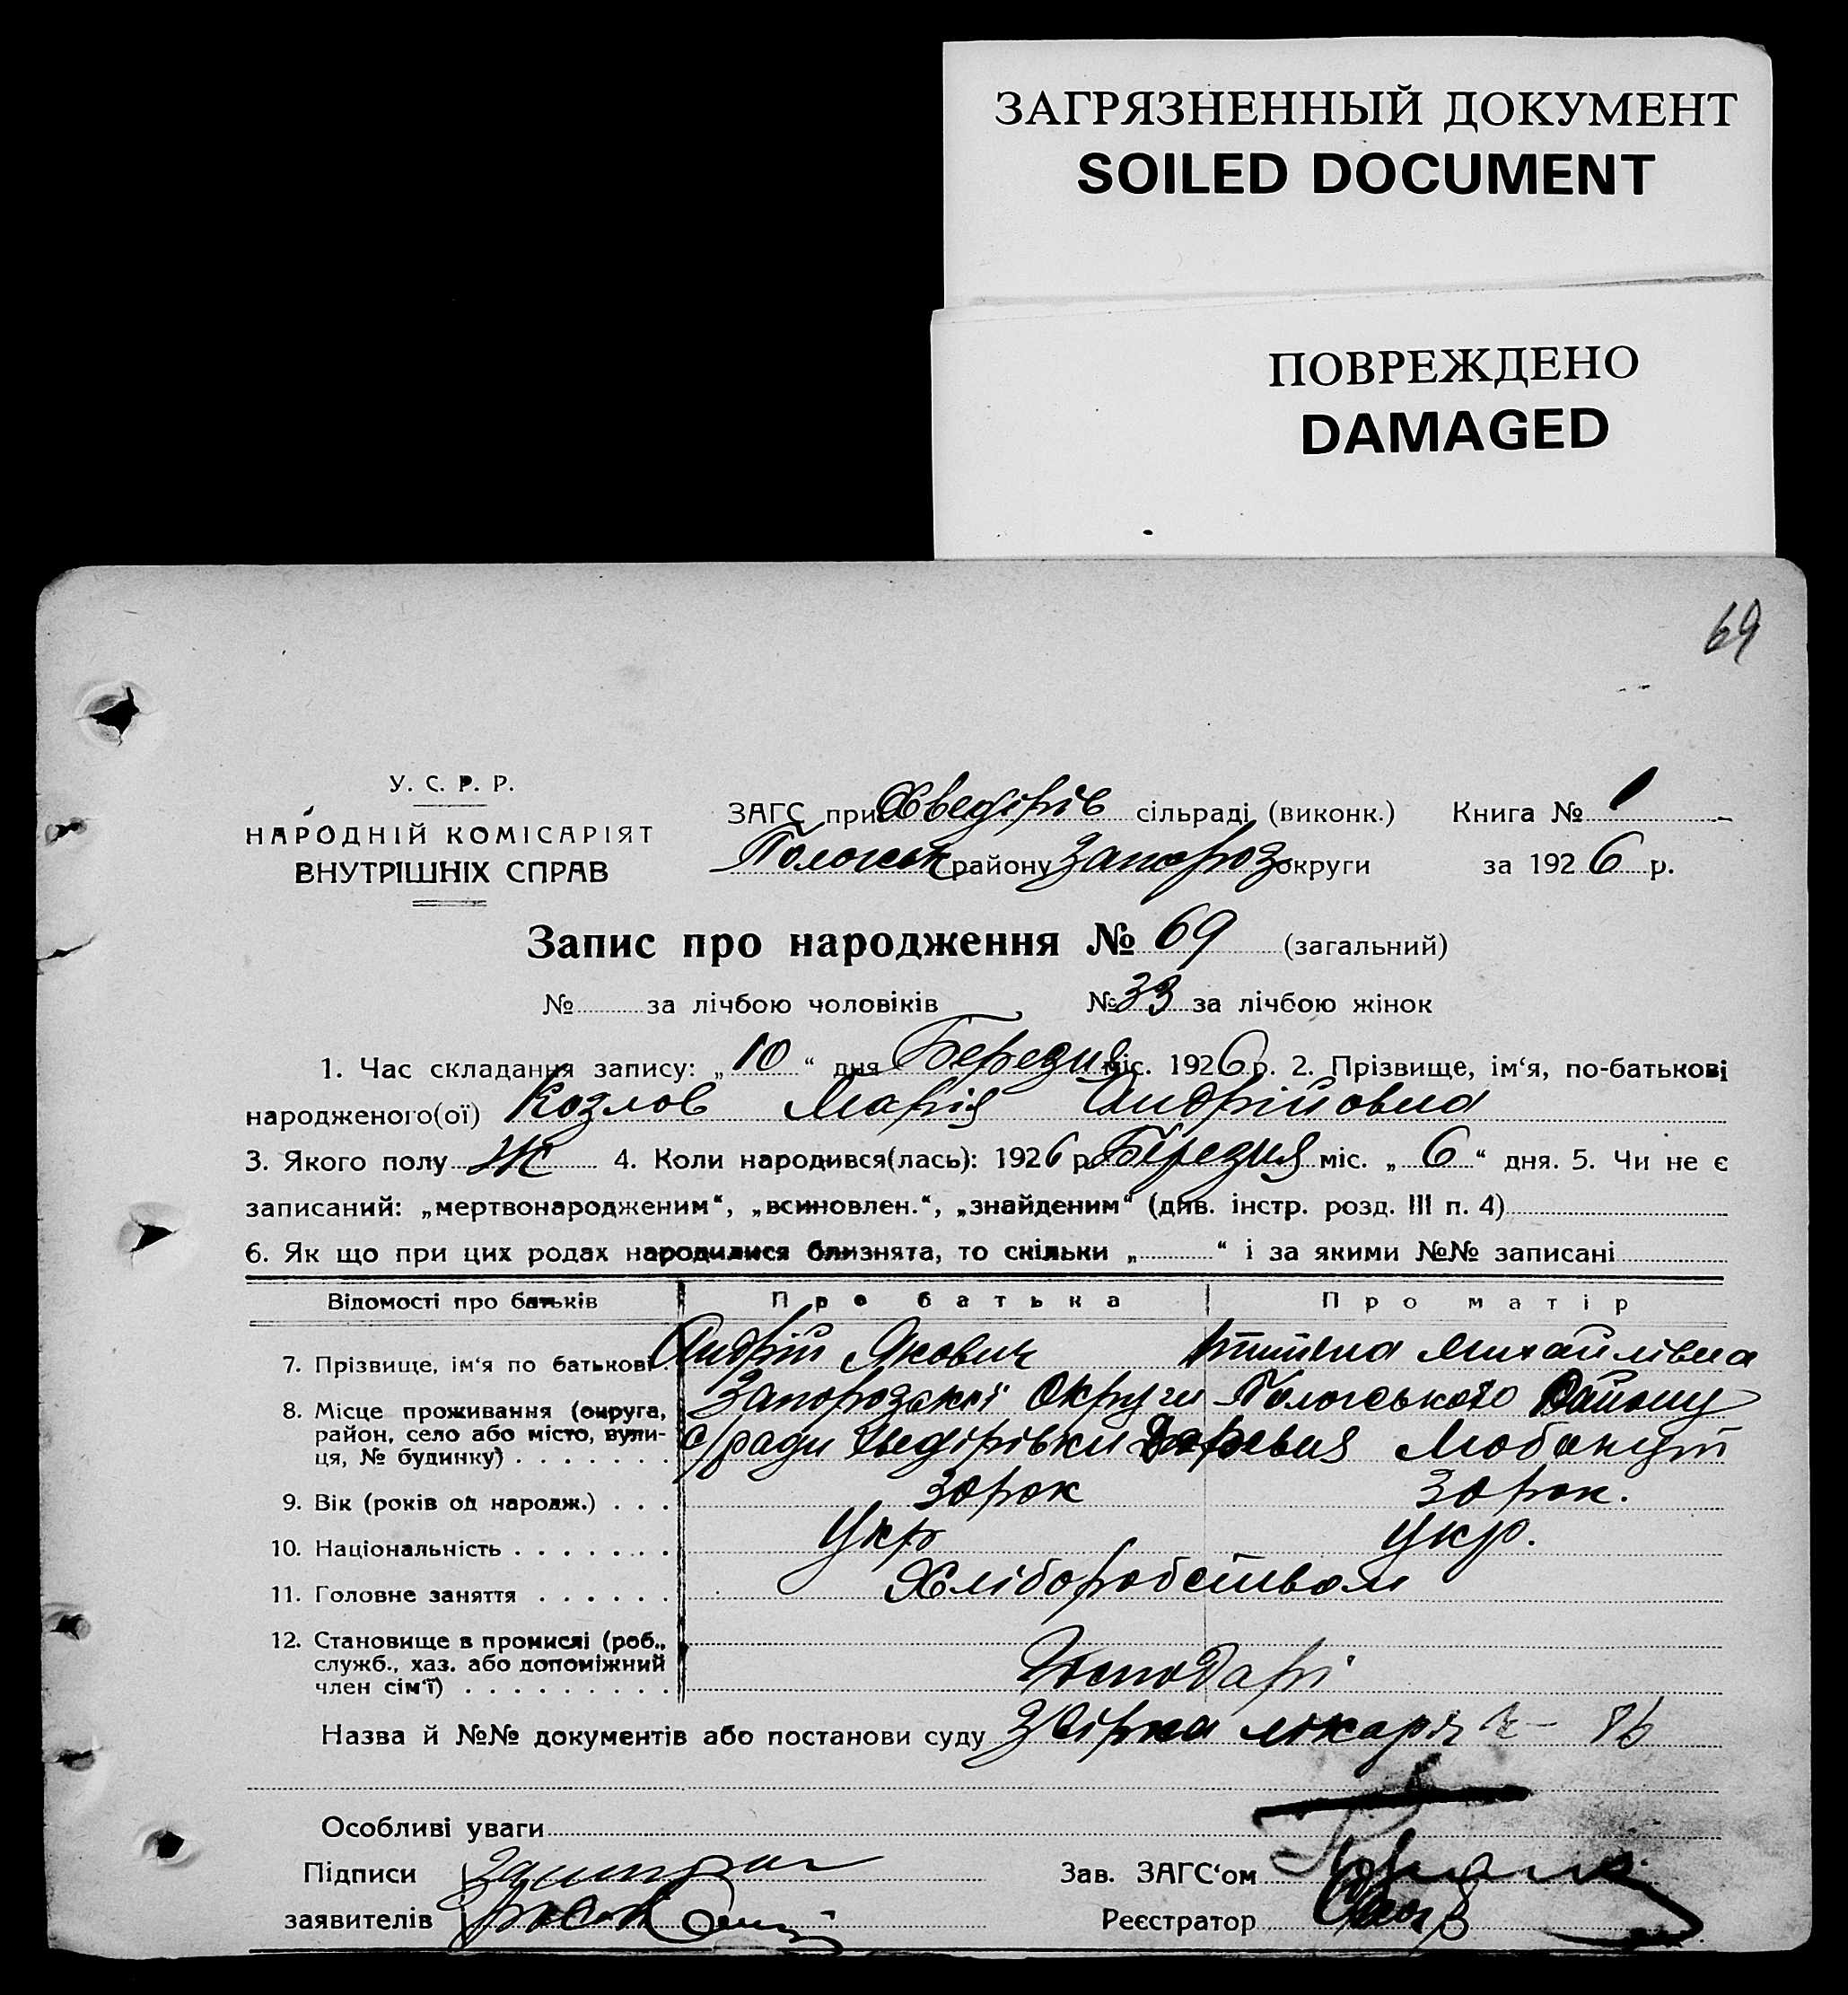 ЗАГРЯЗНЕННЫЙ ДОКУМЕНТ
SOILED DOCUMENT
ПОВРЕЖДЕНО
DAMAGED
69
У. С. Р. Р.
НАРОДНІЙ КОМІСАРІЯТ
ВНУТРІШНІХ СПРАВ
ЗАГС при Хведірів сільраді (виконк.) Книга № 1
Пологськ району Запороз округи за 1926 р.
Запис про народження № 69 (загальний)
№ за лічбою чоловіків № 33 за лічбою жінок
1. Час складання запису: „10“ дня Березня міс. 1926 р. 2. Прізвище, ім‘я, по-батькові
народженого(ої) Козлов Марія Андрійовна
3. Якого полу Ж 4. Коли народився(лась): 1926 р. Березня міс. „6“ дня. 5. Чи не є
записаний: „мертвонародженим“, „всиновлен.“, „знайденим“ (див. інстр. розд. III п. 4)
6. Як що при цих родах народилися близнята, то скільки „ “ і за якими №№ записані
Відомості про батьків Про батька Про матір
7. Прізвище, ім‘я по батькові. Андрій Якович Михайлівна
8. Місце проживання (округа, Запорозької Округи Пологського Району
район, село або місто, вули- с/ради Хведірівки
ця, № будинку)
9. Вік (років од народж.) 30 рок 30 рок.
10. Національність Укр Укр.
11. Головне заняття Хліборобством
12. Становище в промислі (роб.,
служб., хаз. або допоміжний
член сім‘ї) Господарі
Назва й №№ документів або постанови суду
Особливі уваги
Підписи Зав. ЗАГС‘ом
заявителів Реєстратор